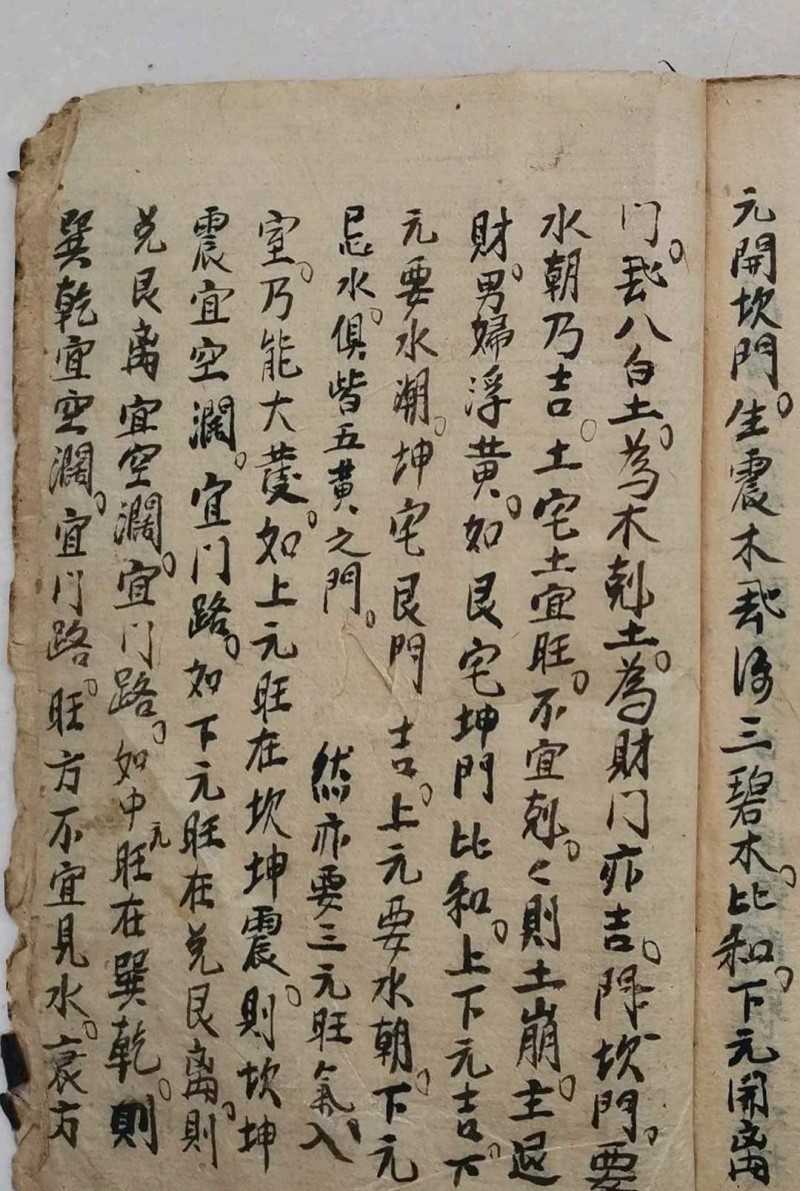 元開坎門。生震木卦得三碧木。比和。下元開离
门。卦八白土。為木剋土。為財门亦吉。除坎門。要
水朝乃吉。土宅土宜旺。不宜剋。々則土崩。主退
財。男婦浮黄。如艮宅坤門比和。上下元吉。下
元要水潮。坤宅艮門吉。上元要水朝。下元
忌水。俱皆五黄之門。然亦要三元旺氣入
室。乃能大發。如上元旺在坎坤震。則坎坤
震宜空濶。宜门路。如下元旺在兑艮离。則
兑艮离宜空濶。宜门路。如中元旺在巽乾。則
巽乾宜空濶。宜门路。旺方不宜見水。衰方